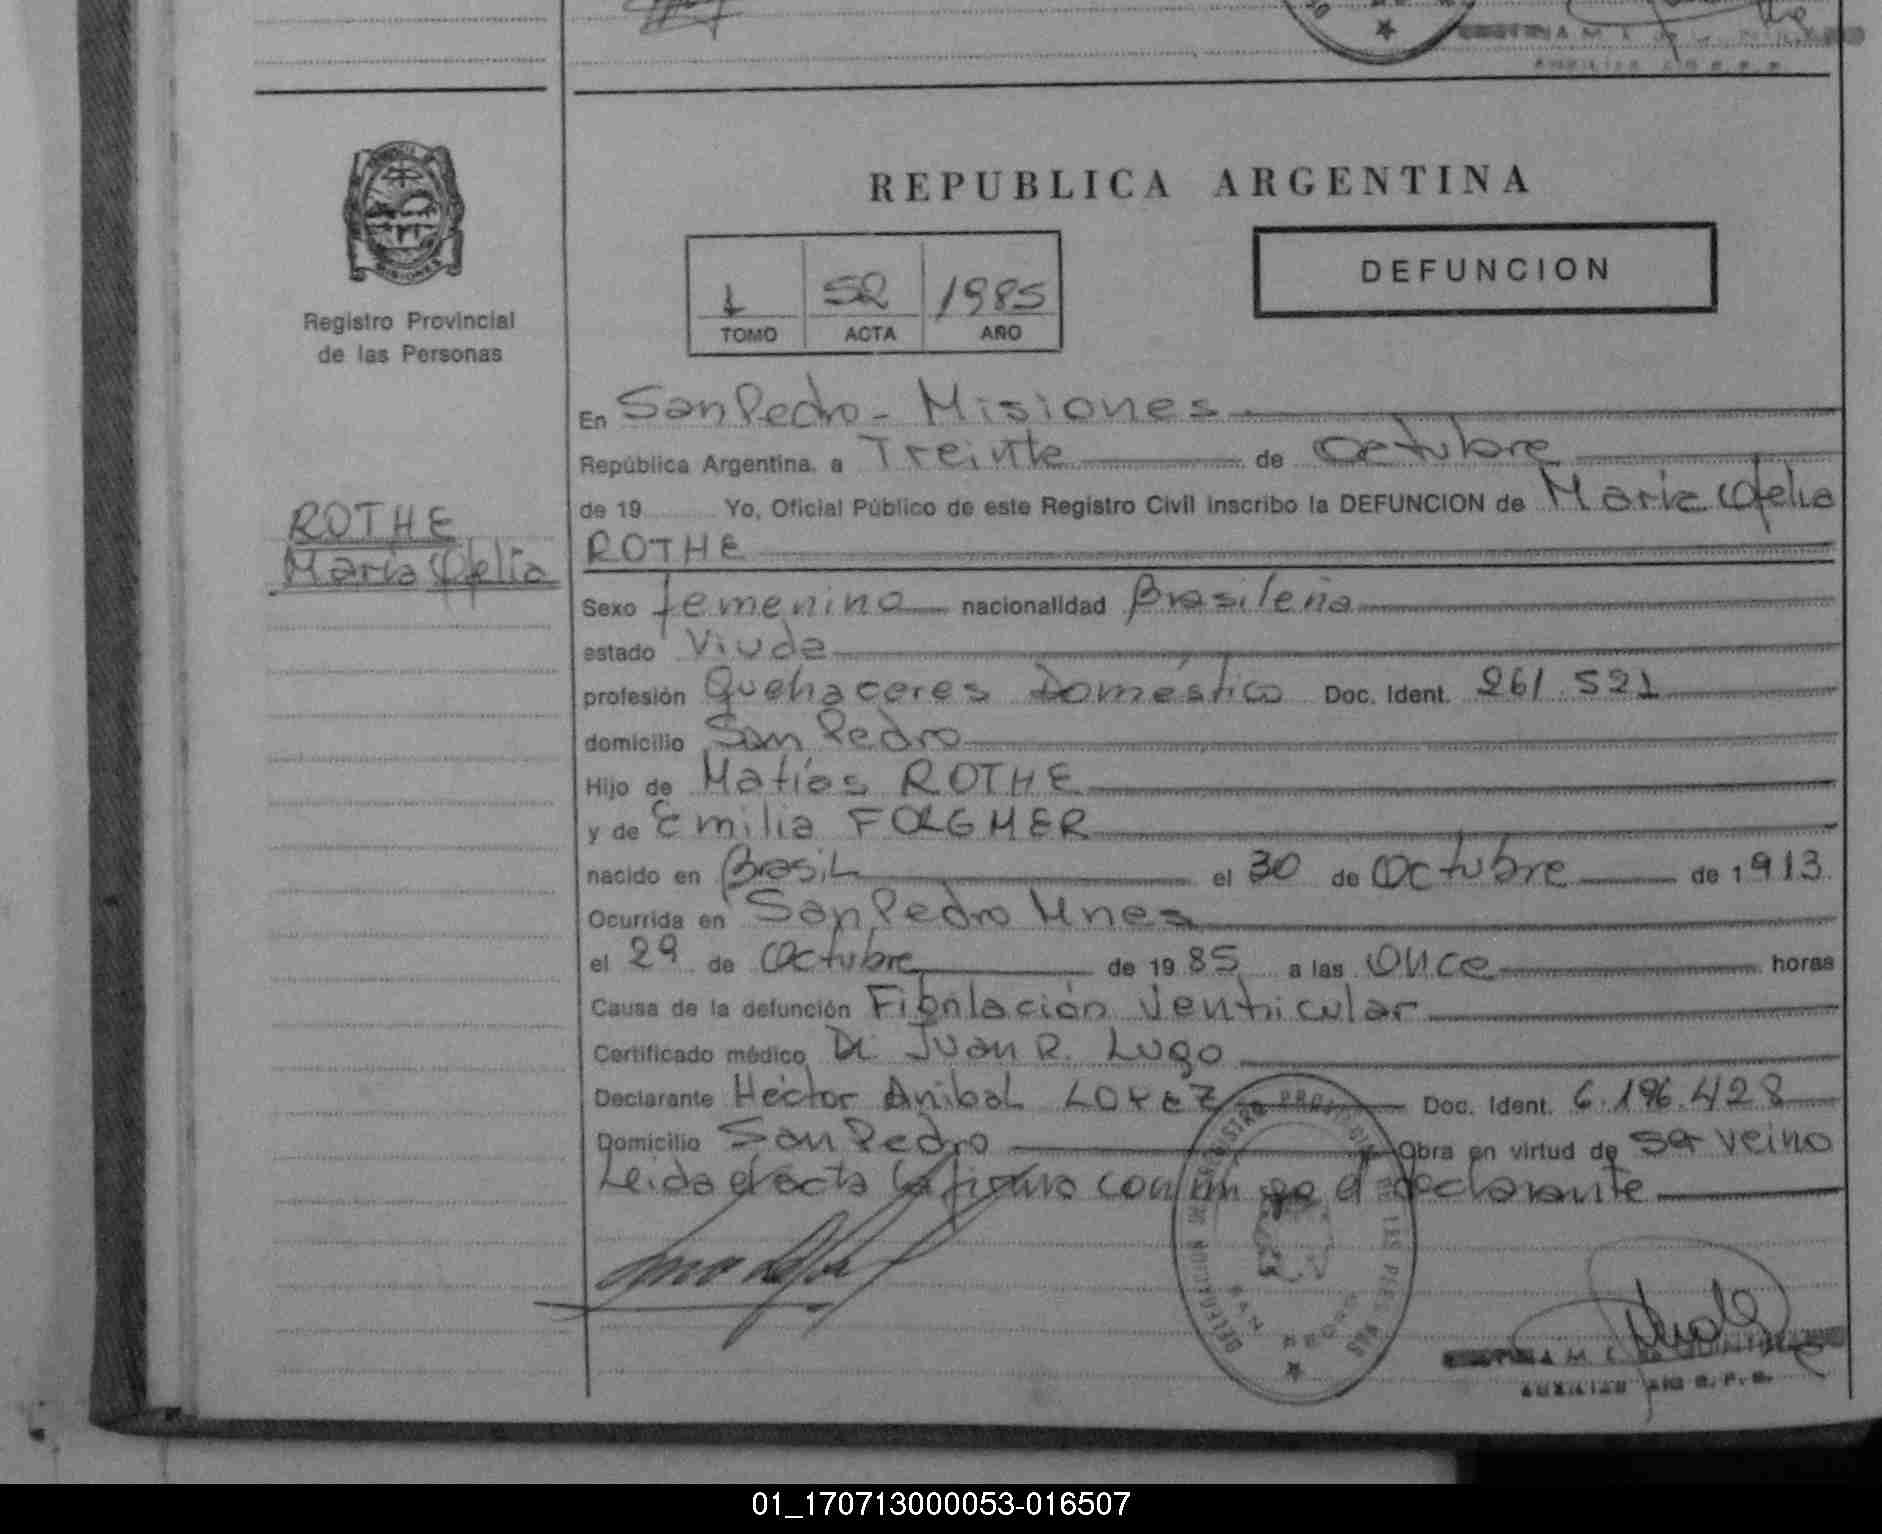 REPUBLICA ARGENTINA
MISIONES
Registro Provincial
de las Personas
1 52 1985
TOMO ACTA AÑO
DEFUNCION
ROTHE
María Ofelia
En San Pedro - Misiones
República Argentina, a Treinta de Octubre
de 19 Yo, Oficial Público de este Registro Civil inscribo la DEFUNCION de María Ofelia
ROTHE
Sexo femenino nacionalidad Brasileña
estado Viuda
profesión Quehaceres Doméstico Doc. Ident. 261.521
domicilio San Pedro
Hijo de Matías ROTHE
y de Emilia FOLGMER
nacido en Brasil el 30 de Octubre de 1913
Ocurrida en San Pedro Mnes
el 29 de Octubre de 1985 a las Once horas
Causa de la defunción Fibrilación Ventricular
Certificado médico Dr. Juan R. Lugo
Declarante Héctor Anibal LOPEZ Doc. Ident. 6.196.428
Domicilio San Pedro Obra en virtud de ser
Leida el acta la firma conmigo el declarante
DELEGACION DEL REGISTRO PROVINCIAL DE LAS PERSONAS
SAN PEDRO
01_170713000053-016507